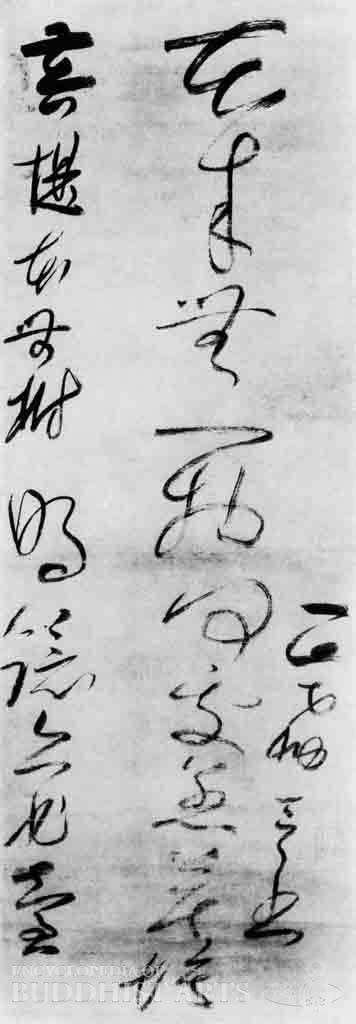 菩提本無樹明鏡亦非臺
本來無一物何處惹塵埃
書
ENCYCLOPEDIA OF
BUDDHIST ARTS